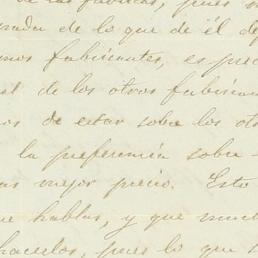 de las fábricas, pues
de lo que de él de
mos fabricantes, es prec
de los otros fabrican
os de estar sobre los ot
la preferencia sobre
as mejor precio. Esto
ue hablas, y que much
hacerlos, pues lo que